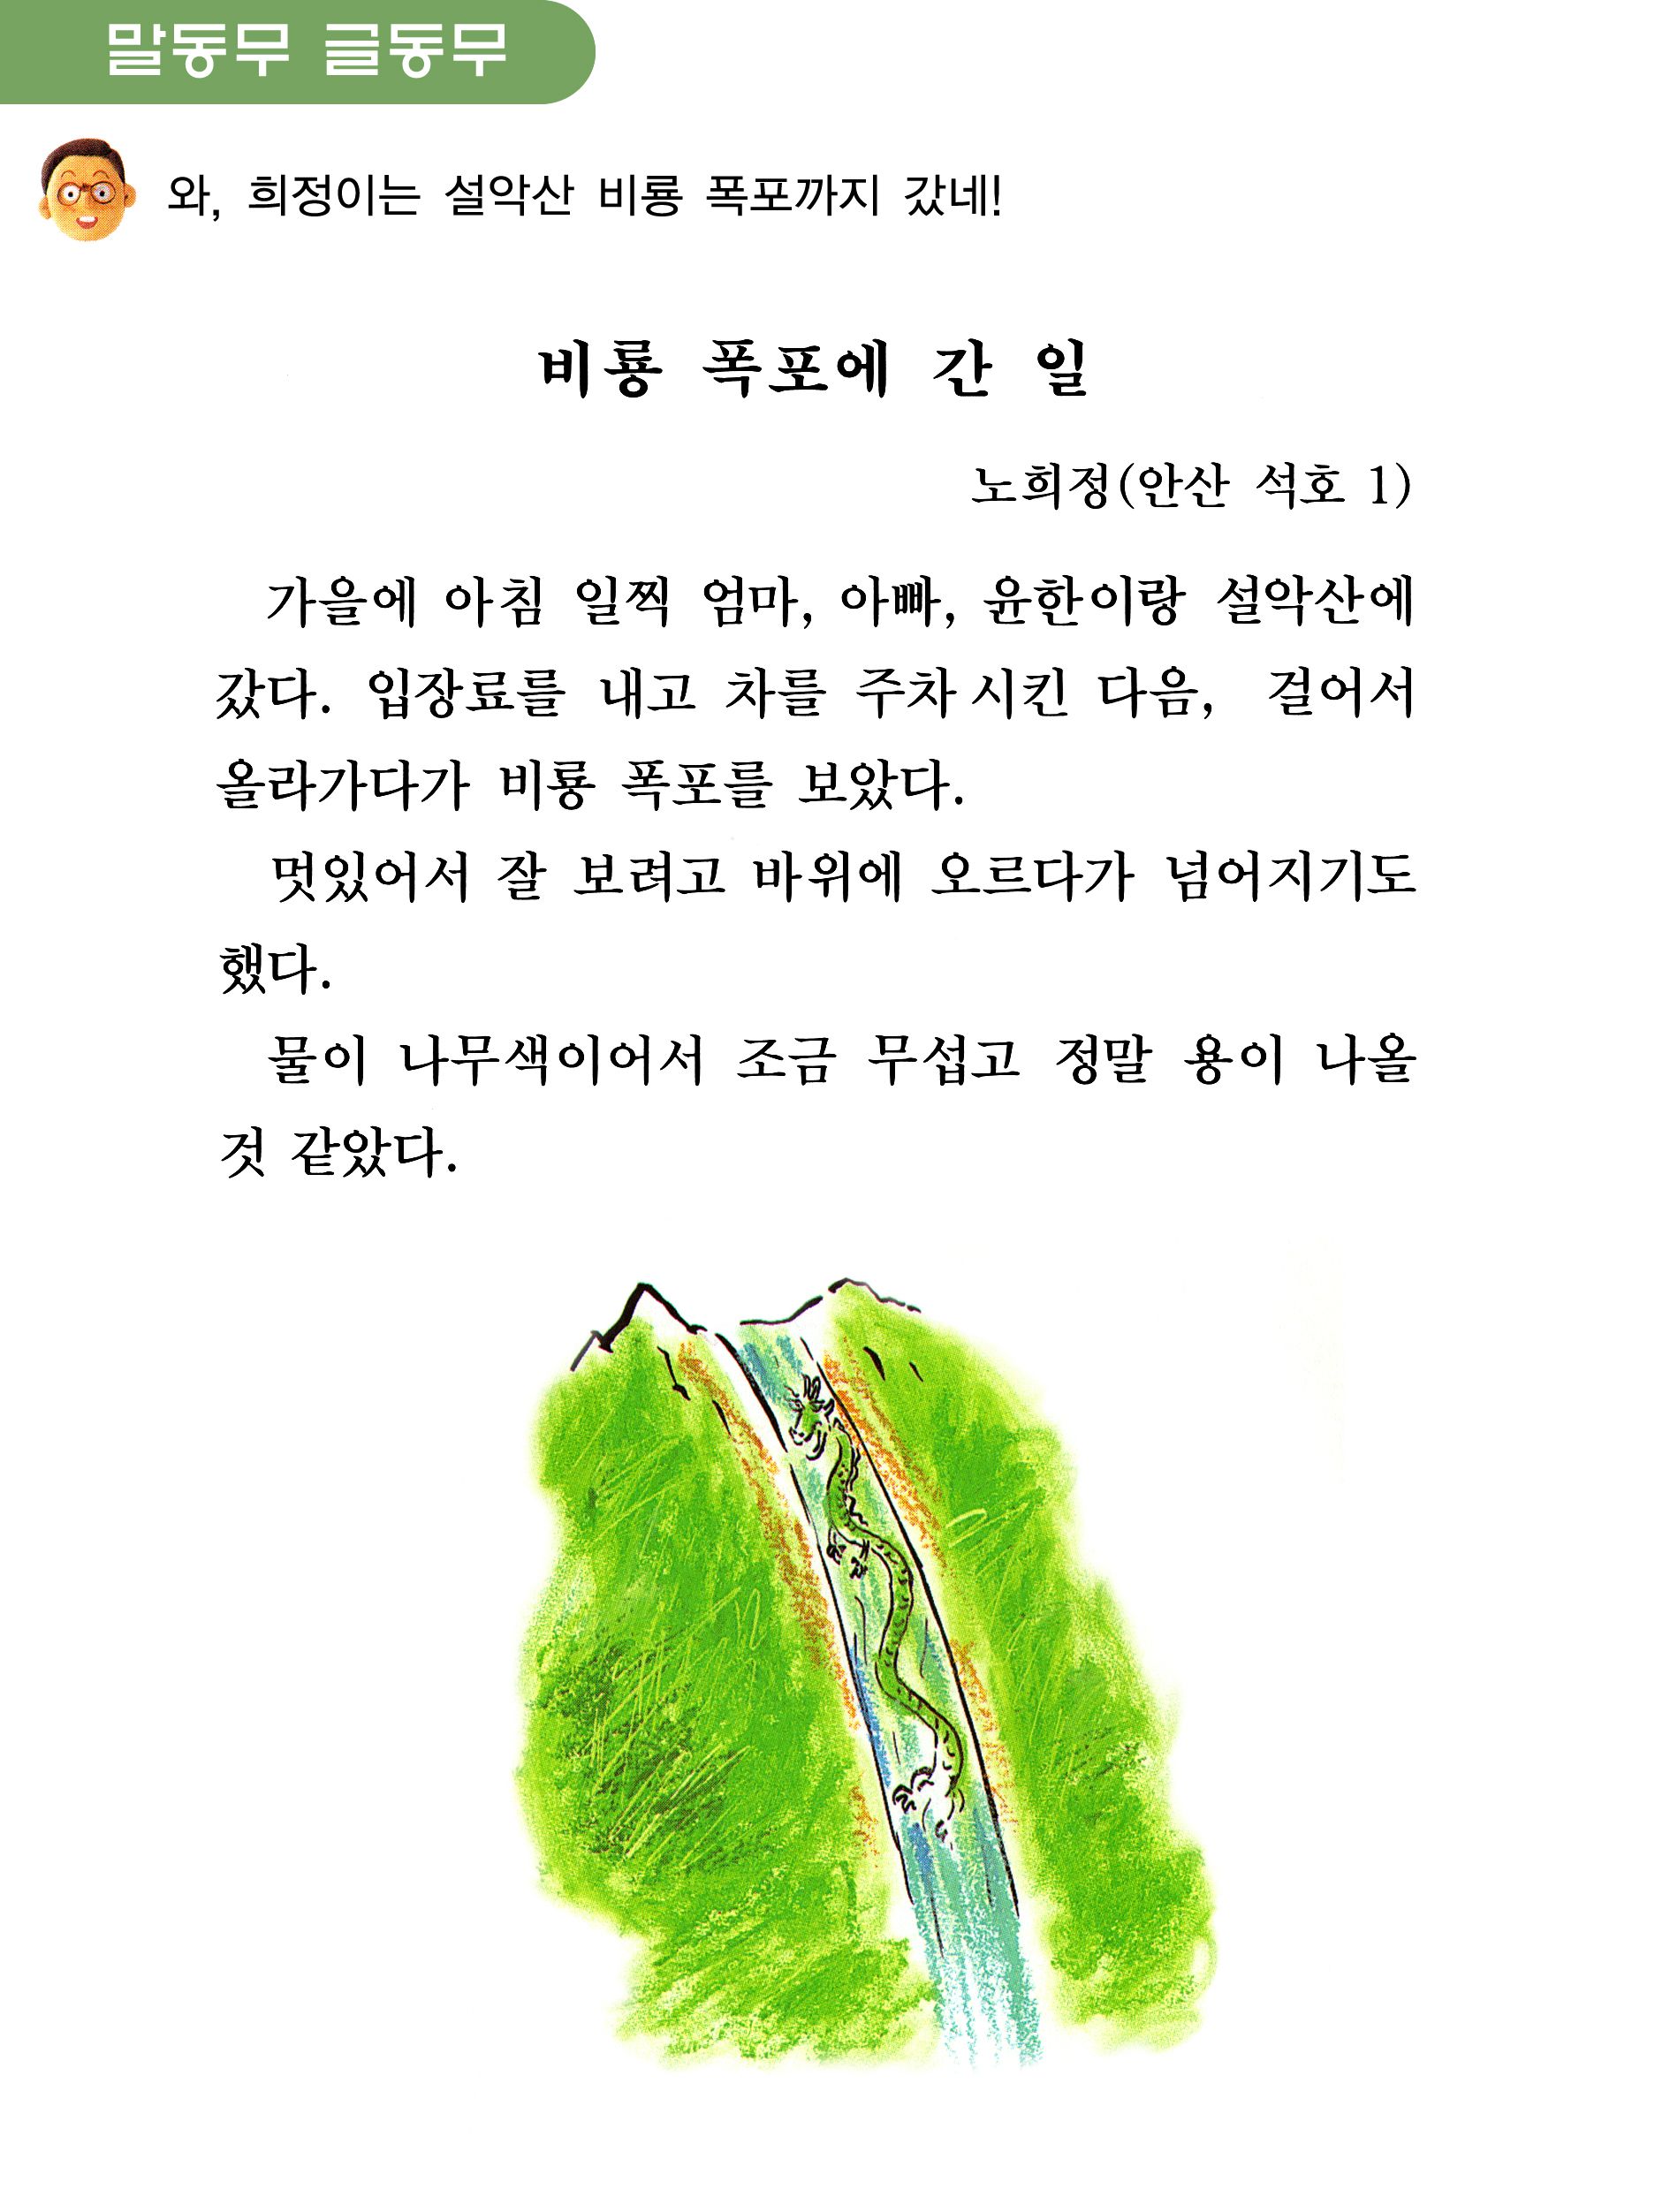 말동무 글동무
와, 희정이는 설악산 비룡 폭포까지 갔네!
비룡 폭포에 간 일
노희정(안산 석호 1)
가을에 아침 일찍 엄마, 아빠, 윤한이랑 설악산에
갔다. 입장료를 내고 차를 주차시킨 다음, 걸어서
올라가다가 비룡 폭포를 보았다.
멋있어서 잘 보려고 바위에 오르다가 넘어지기도
했다.
물이 나무색이어서 조금 무섭고 정말 용이 나올
것 같았다.